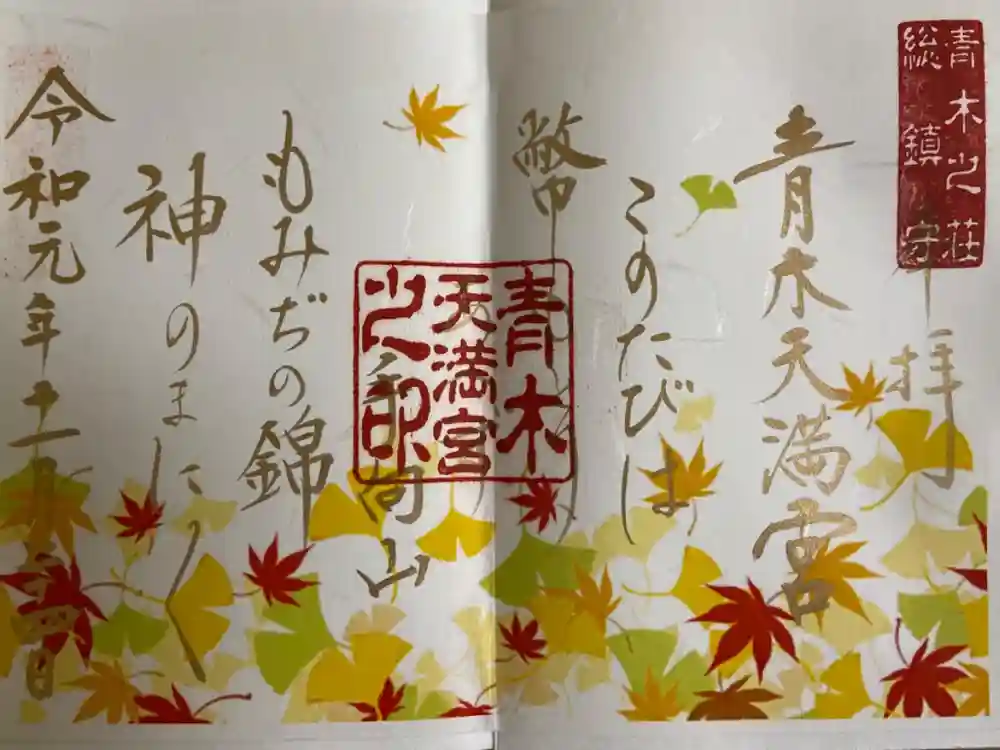 青木之荘
総鎮守
奉拝
青木天満宮
このたびは
幣
手向山
青木
天満宮
之印
もみぢの錦
神のまに〱
令和元年十一月日